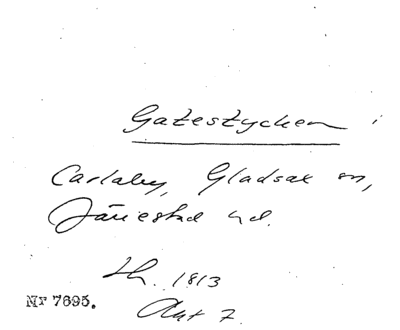 Gatestycken i
Carlaby, Gladsax sn,
Järrestad hd.
Lh. 1813
Nr 7695.
Akt 7